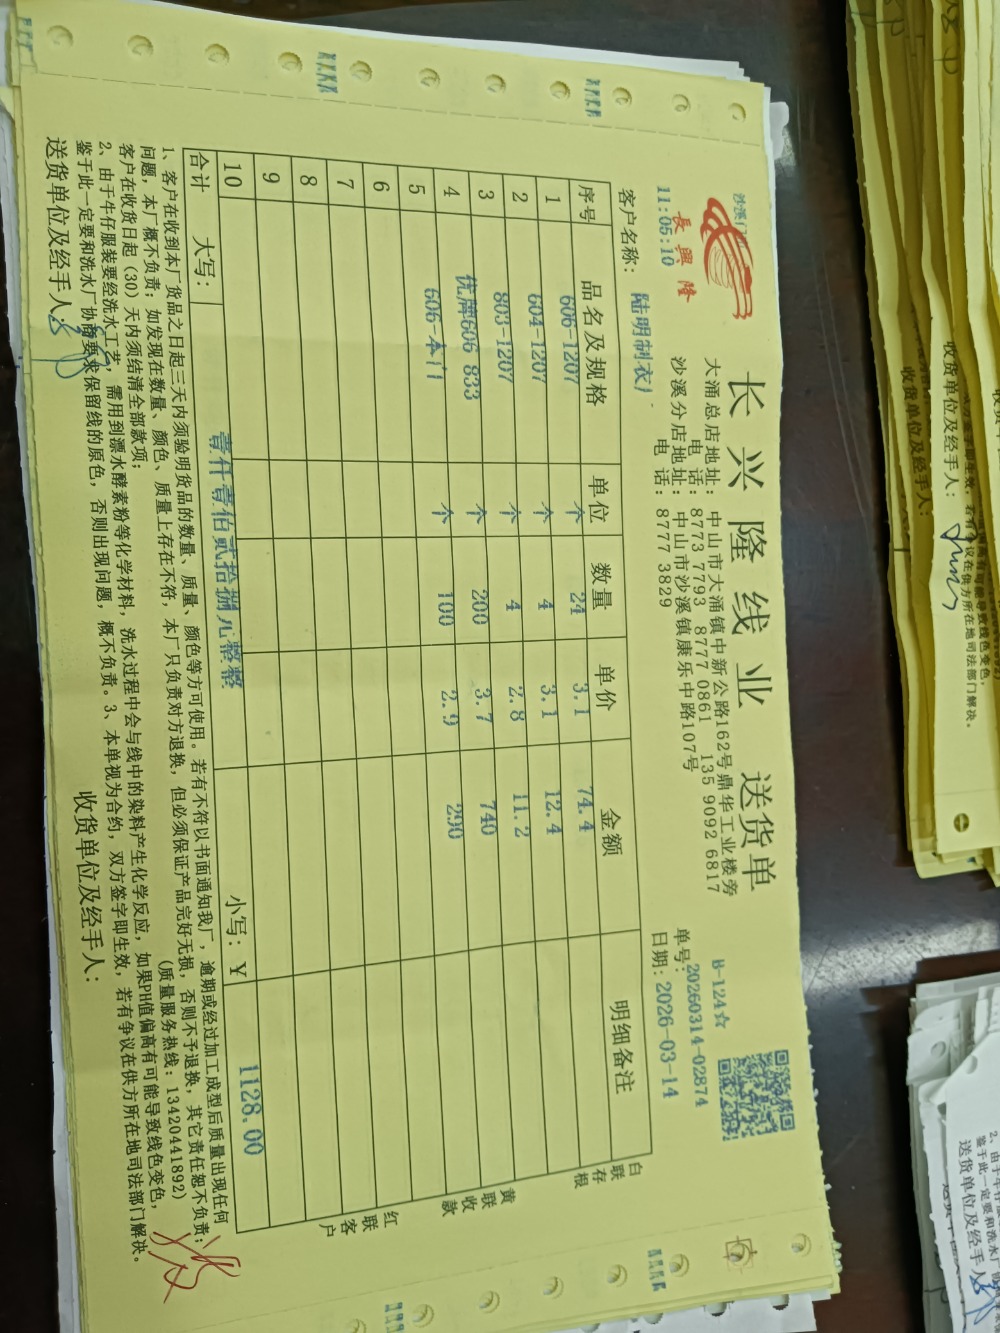 沙溪门
長興隆
11:05:10
长兴隆线业 送货单
大涌总店地址: 中山市大涌镇中新公路162号鼎华工业楼旁
电 话: 8773 7793 8777 0861 135 9092 6817
沙溪分店地址: 中山市沙溪镇康乐中路107号
电 话: 8777 3829
B-124☆
单号: 20260314-02874
日期: 2026-03-14
客户名称: 陆明制衣厂
序号 品名及规格 单位 数量 单价 金额 明细备注
1 606-1207 个 24 3.1 74.4
2 604-1207 个 4 3.1 12.4
3 803-1207 个 4 2.8 11.2
4 优牌606 833 个 200 3.7 740
5 606-本门 个 100 2.9 290
6
7
8
9
10
合计 大写: 壹仟壹佰贰拾捌元整整 小写: ¥ 1128.00
白联存根
黄联收款
红联客户
1、客户在收到本厂货品之日起三天内须验明货品的数量、质量、颜色等方可使用。若有不符以书面通知我厂,逾期或经过加工成型后质量出现任何
问题,本厂概不负责;如发现在数量、颜色、质量上存在不符,本厂只负责对方退换,但必须保证产品完好无损,否则不予退换,其它责任恕不负责;
客户在收货日起(30)天内须结清全部款项; (质量服务热线:13420441892)
2、由于牛仔服装要经洗水工艺,需用到漂水酵素粉等化学材料,洗水过程中会与线中的染料产生化学反应,如果PH值偏高有可能导致线色变色,
鉴于此一定要和洗水厂协商要求保留线的原色,否则出现问题,概不负责。3、本单视为合约,双方签字即生效,若有争议在供方所在地司法部门解决。
送货单位及经手人: 收货单位及经手人:
收货单位及经手人:
收货单位及经手人:
送货单位及经手人